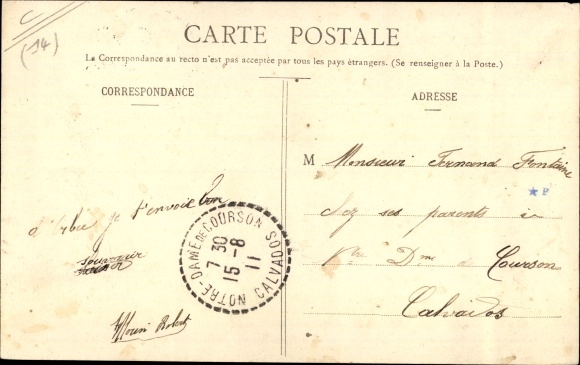 (14)
CARTE POSTALE
La Correspondance au recto n'est pas acceptée par tous les pays étrangers. (Se renseigner à la Poste.)
CORRESPONDANCE
d'Orbec je t'envoie bon
souvenir
Robert
NOTRE-DAME DE COURSON CALVADOS
7 30
15-8
11
ADRESSE
M Monsieur Fernand Fontaine
chez ses parents à
Dme de Courson
Calvados